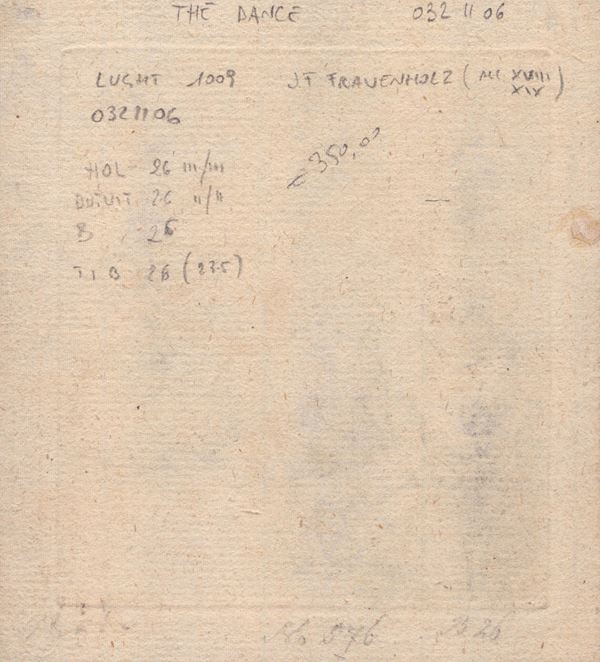 THE DANCE 032 11 06
LUGHT 1009 JF FRAUENHOLZ ( XVIII
XIX )
0321106
350,00
HOL 26 III/III
DUTUIT 26 II/II
B 26
TIB 26 (235)
No 576 B 26